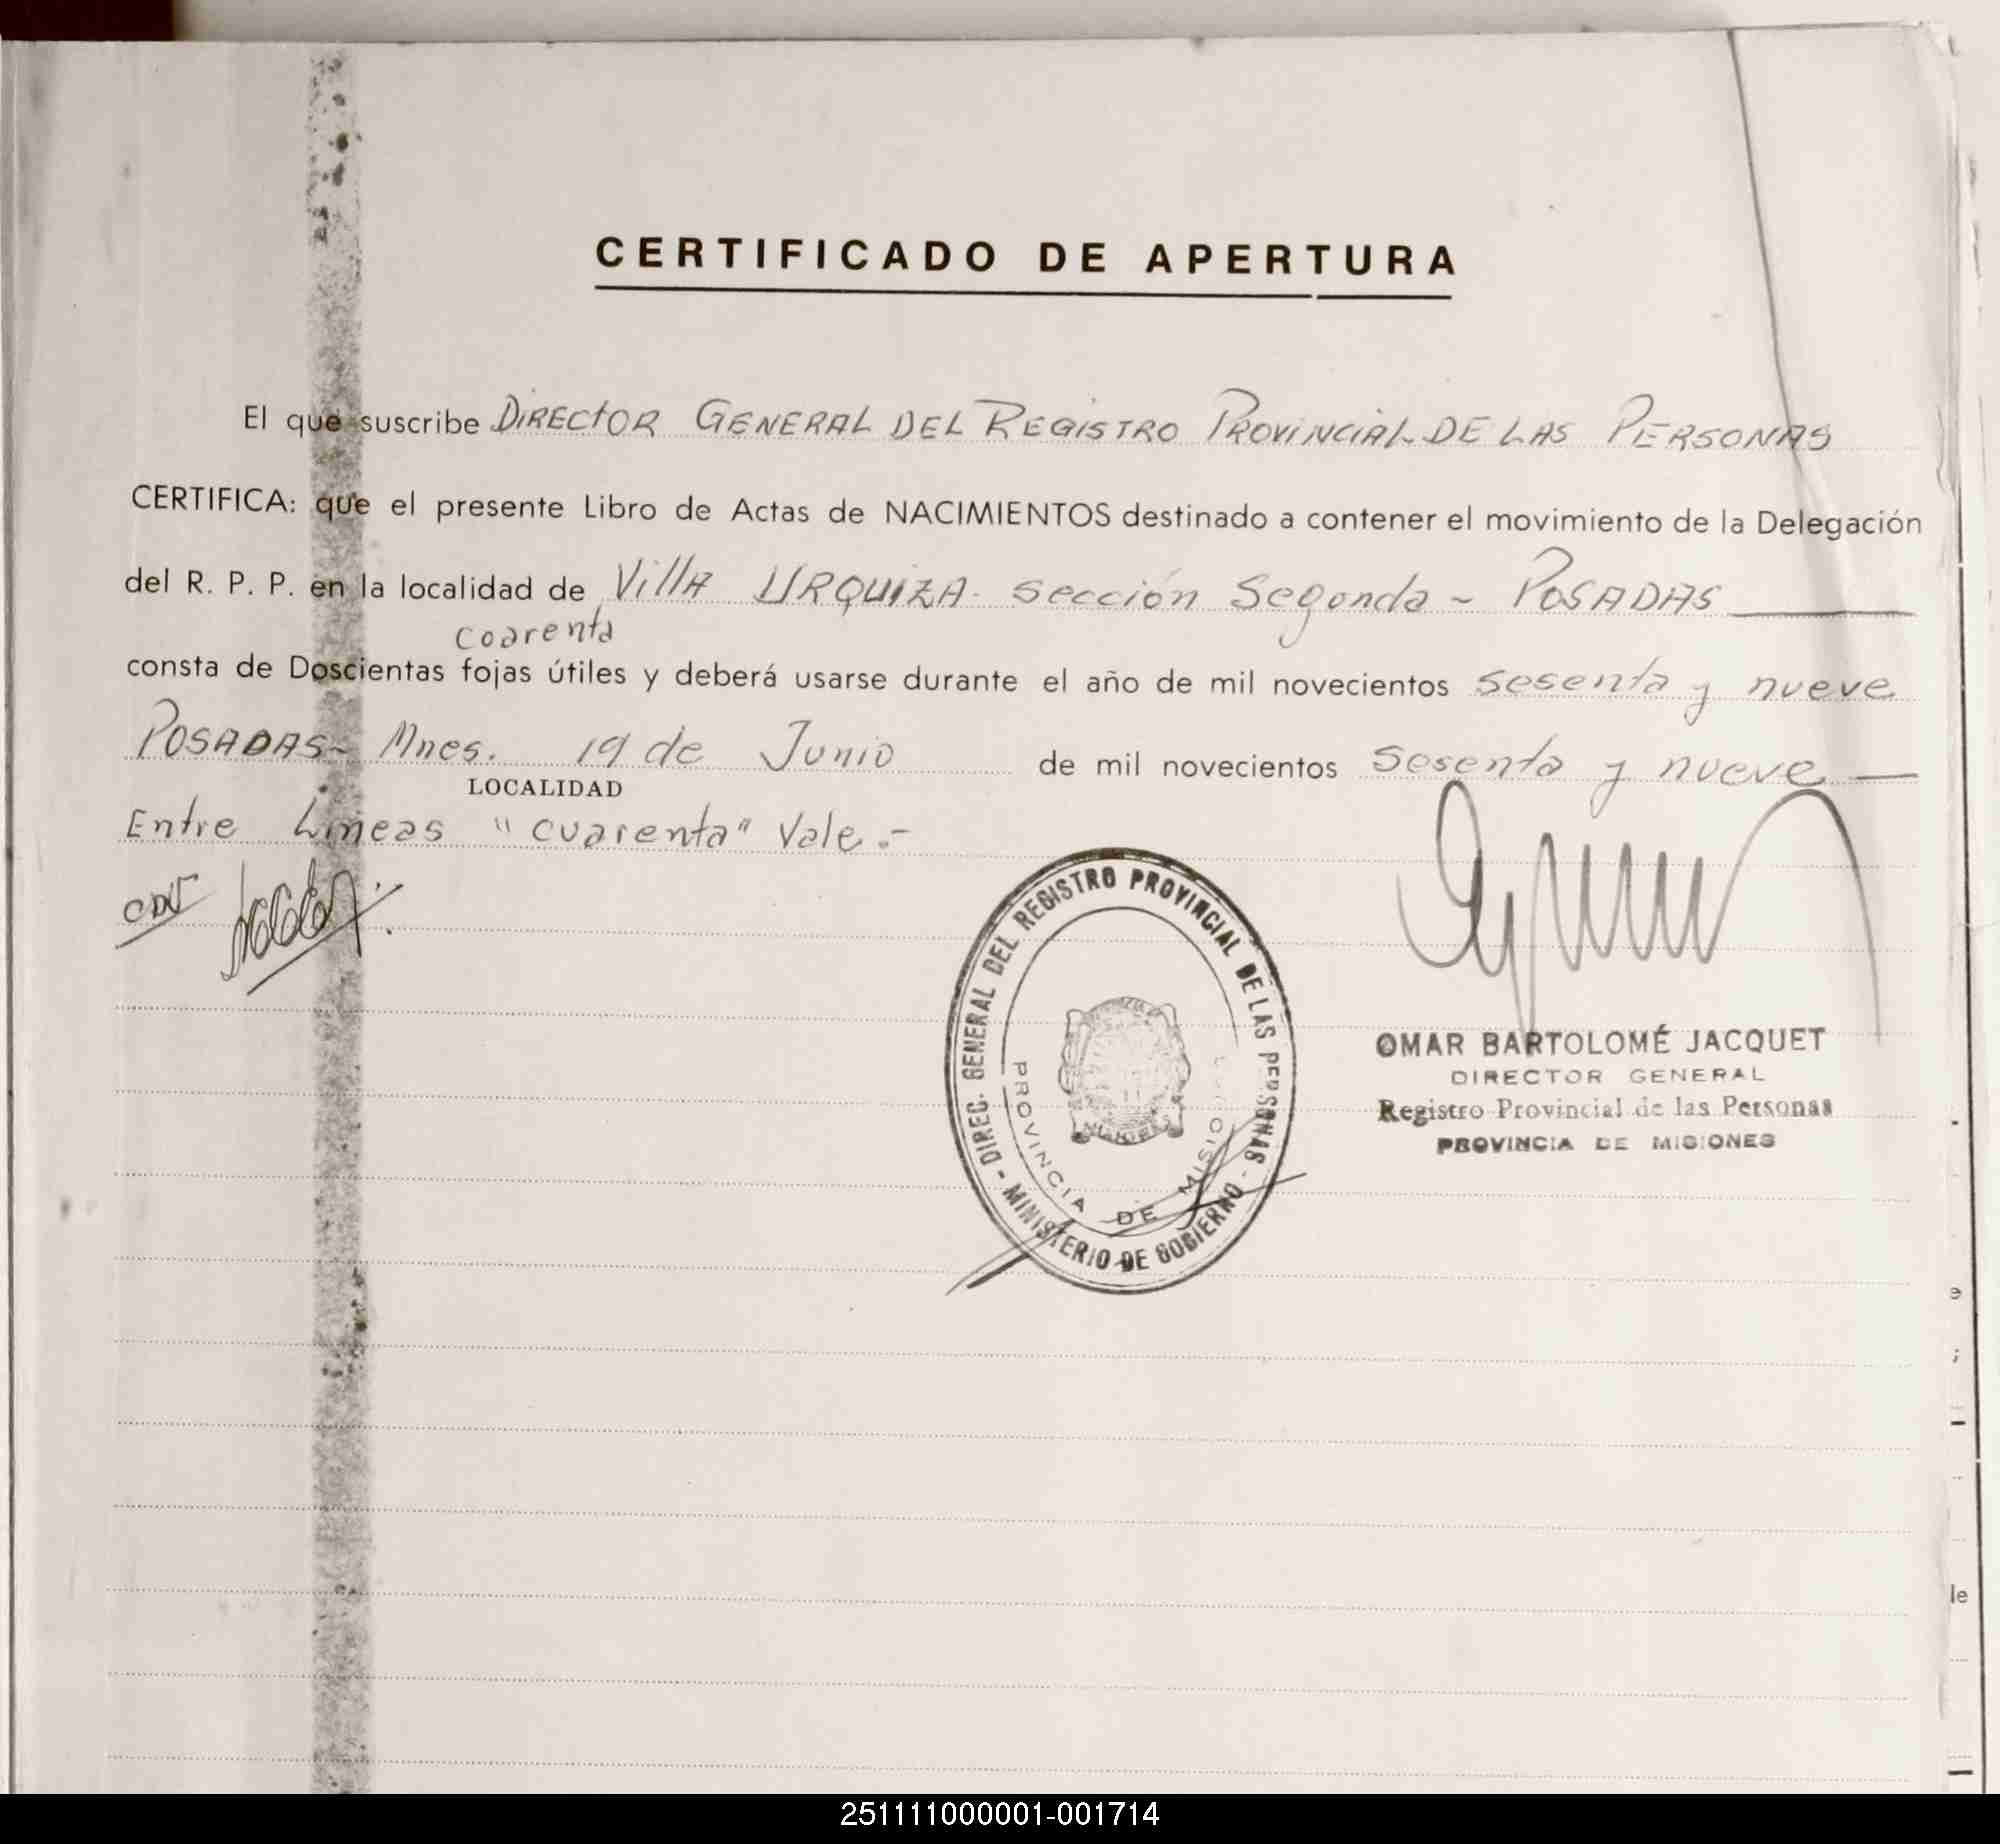 CERTIFICADO DE APERTURA
El que suscribe DIRECTOR GENERAL DEL REGISTRO PROVINCIAL DE LAS PERSONAS
CERTIFICA: que el presente Libro de Actas de NACIMIENTOS destinado a contener el movimiento de la Delegación
del R. P. P. en la localidad de Villa URQUIZA - Sección Segunda - POSADAS
Coarenta
consta de Doscientas fojas útiles y deberá usarse durante el año de mil novecientos sesenta y nueve
POSADAS - Mnes. 19 de Junio de mil novecientos sesenta y nueve
LOCALIDAD
Entre Líneas "cuarenta" Vale.-
CDV
DIREC. GENERAL DEL REGISTRO PROVINCIAL DE LAS PERSONAS
- MINISTERIO DE GOBIERNO -
PROVINCIA DE MISIO
OMAR BARTOLOMÉ JACQUET
DIRECTOR GENERAL
Registro Provincial de las Personas
PROVINCIA DE MISIONES
e
;
le
251111000001-001714